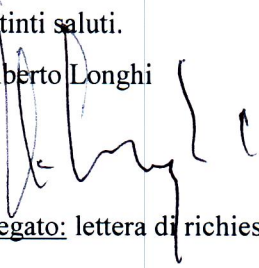 tinti saluti.
berto Longhi
egato: lettera di richies